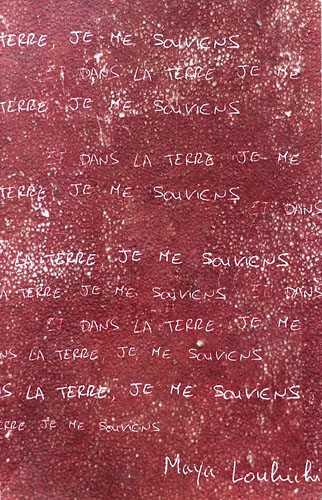 TERRE, JE ME SOUVIENS
ET DANS LA TERRE JE ME
TERRE, JE ME SOUVIENS
ET DANS LA TERRE JE ME
TERRE JE ME SOUVIENS
ET DANS
LA TERRE JE ME SOUVIENS
LA TERRE JE ME SOUVIENS ET DANS
ET DANS LA TERRE, JE ME
NS LA TERRE JE ME SOUVIENS
S LA TERRE, JE ME SOUVIENS
ERRE JE ME SOUVIENS
Maya Louhichi